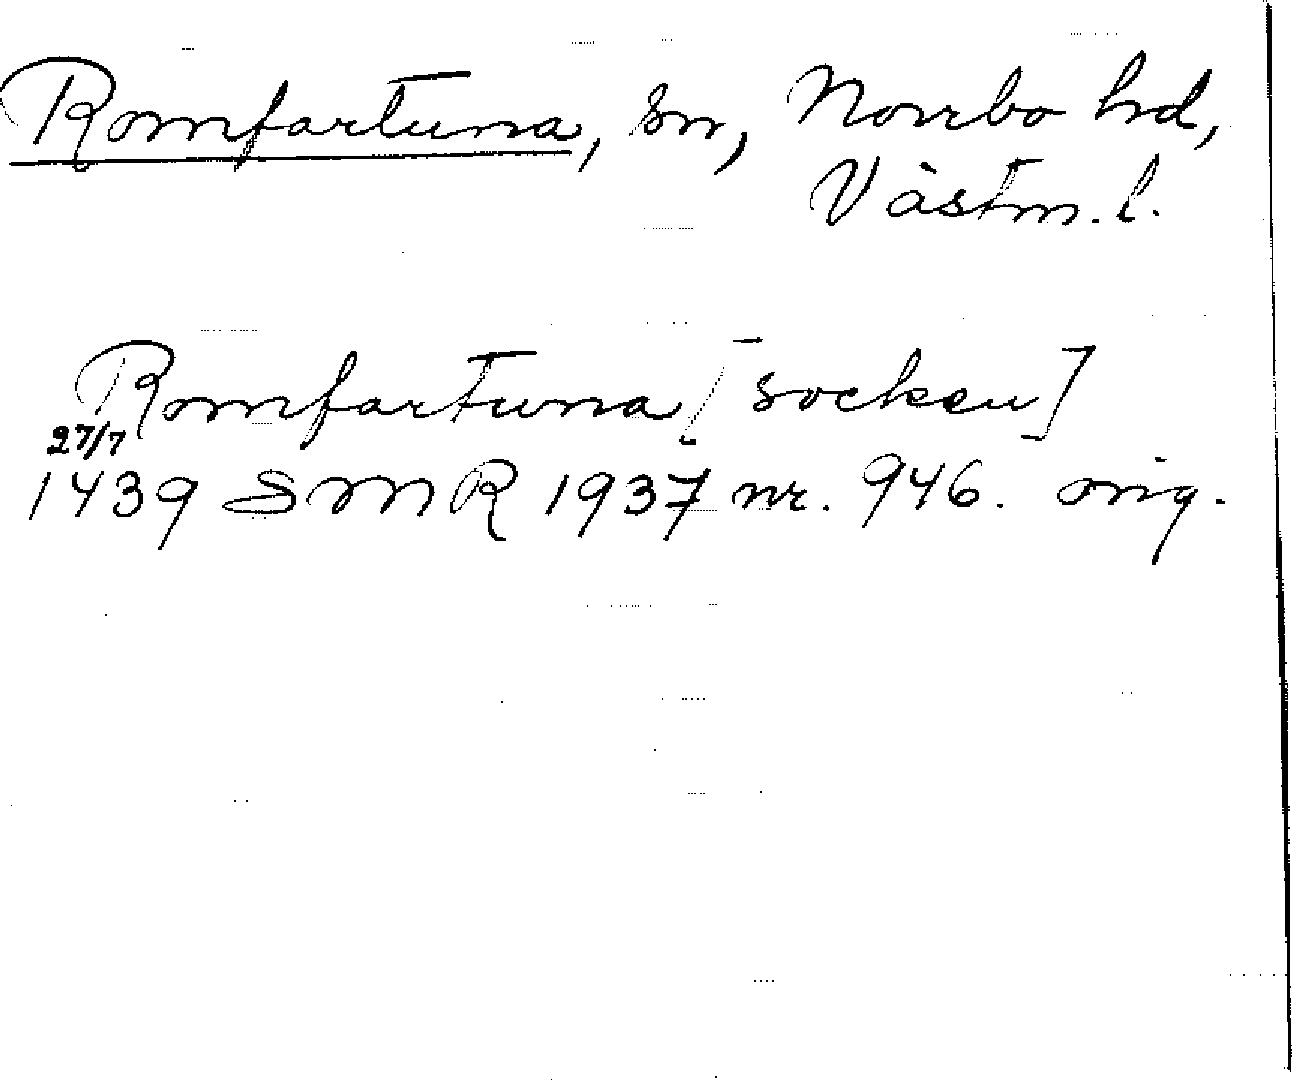 Romfartuna, sn, Norrbo hd,
Västm. l.
Romfartuna [socken]
27/7
1439 SMR 1937 nr. 946. orig.